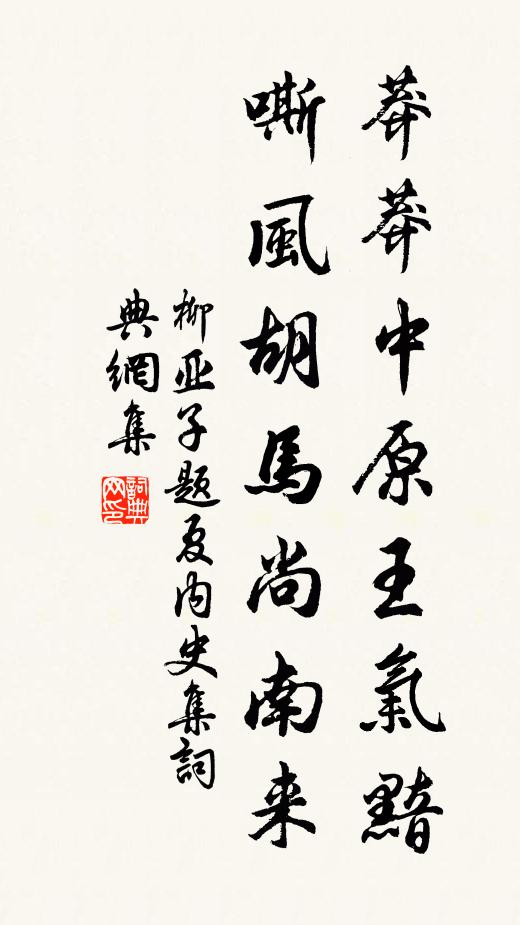 莽莽中原王氣黯
嘶風胡馬尚南来
柳亚子题夏内史集詞
典網集
詞典网印